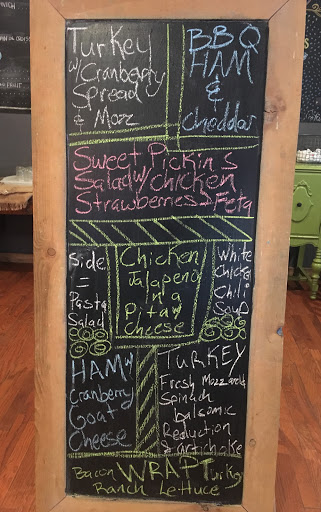 Turkey
w/Cranberry
Spread
& Mozz
BBQ
HAM
&
Cheddar
Sweet Pickins
Salad w/ chicken
Strawberries & Feta
Side
=
Pasta
Salad
Chicken
Jalapeno
in a
Pita w
Cheese
White
Chicken
Chili
Soup
HAM w
Cranberry
Goat
Cheese
TURKEY
Fresh Mozzarella
Spinach
balsomic
Reduction
& artichoke
Bacon WRAP Turkey
Ranch Lettuce